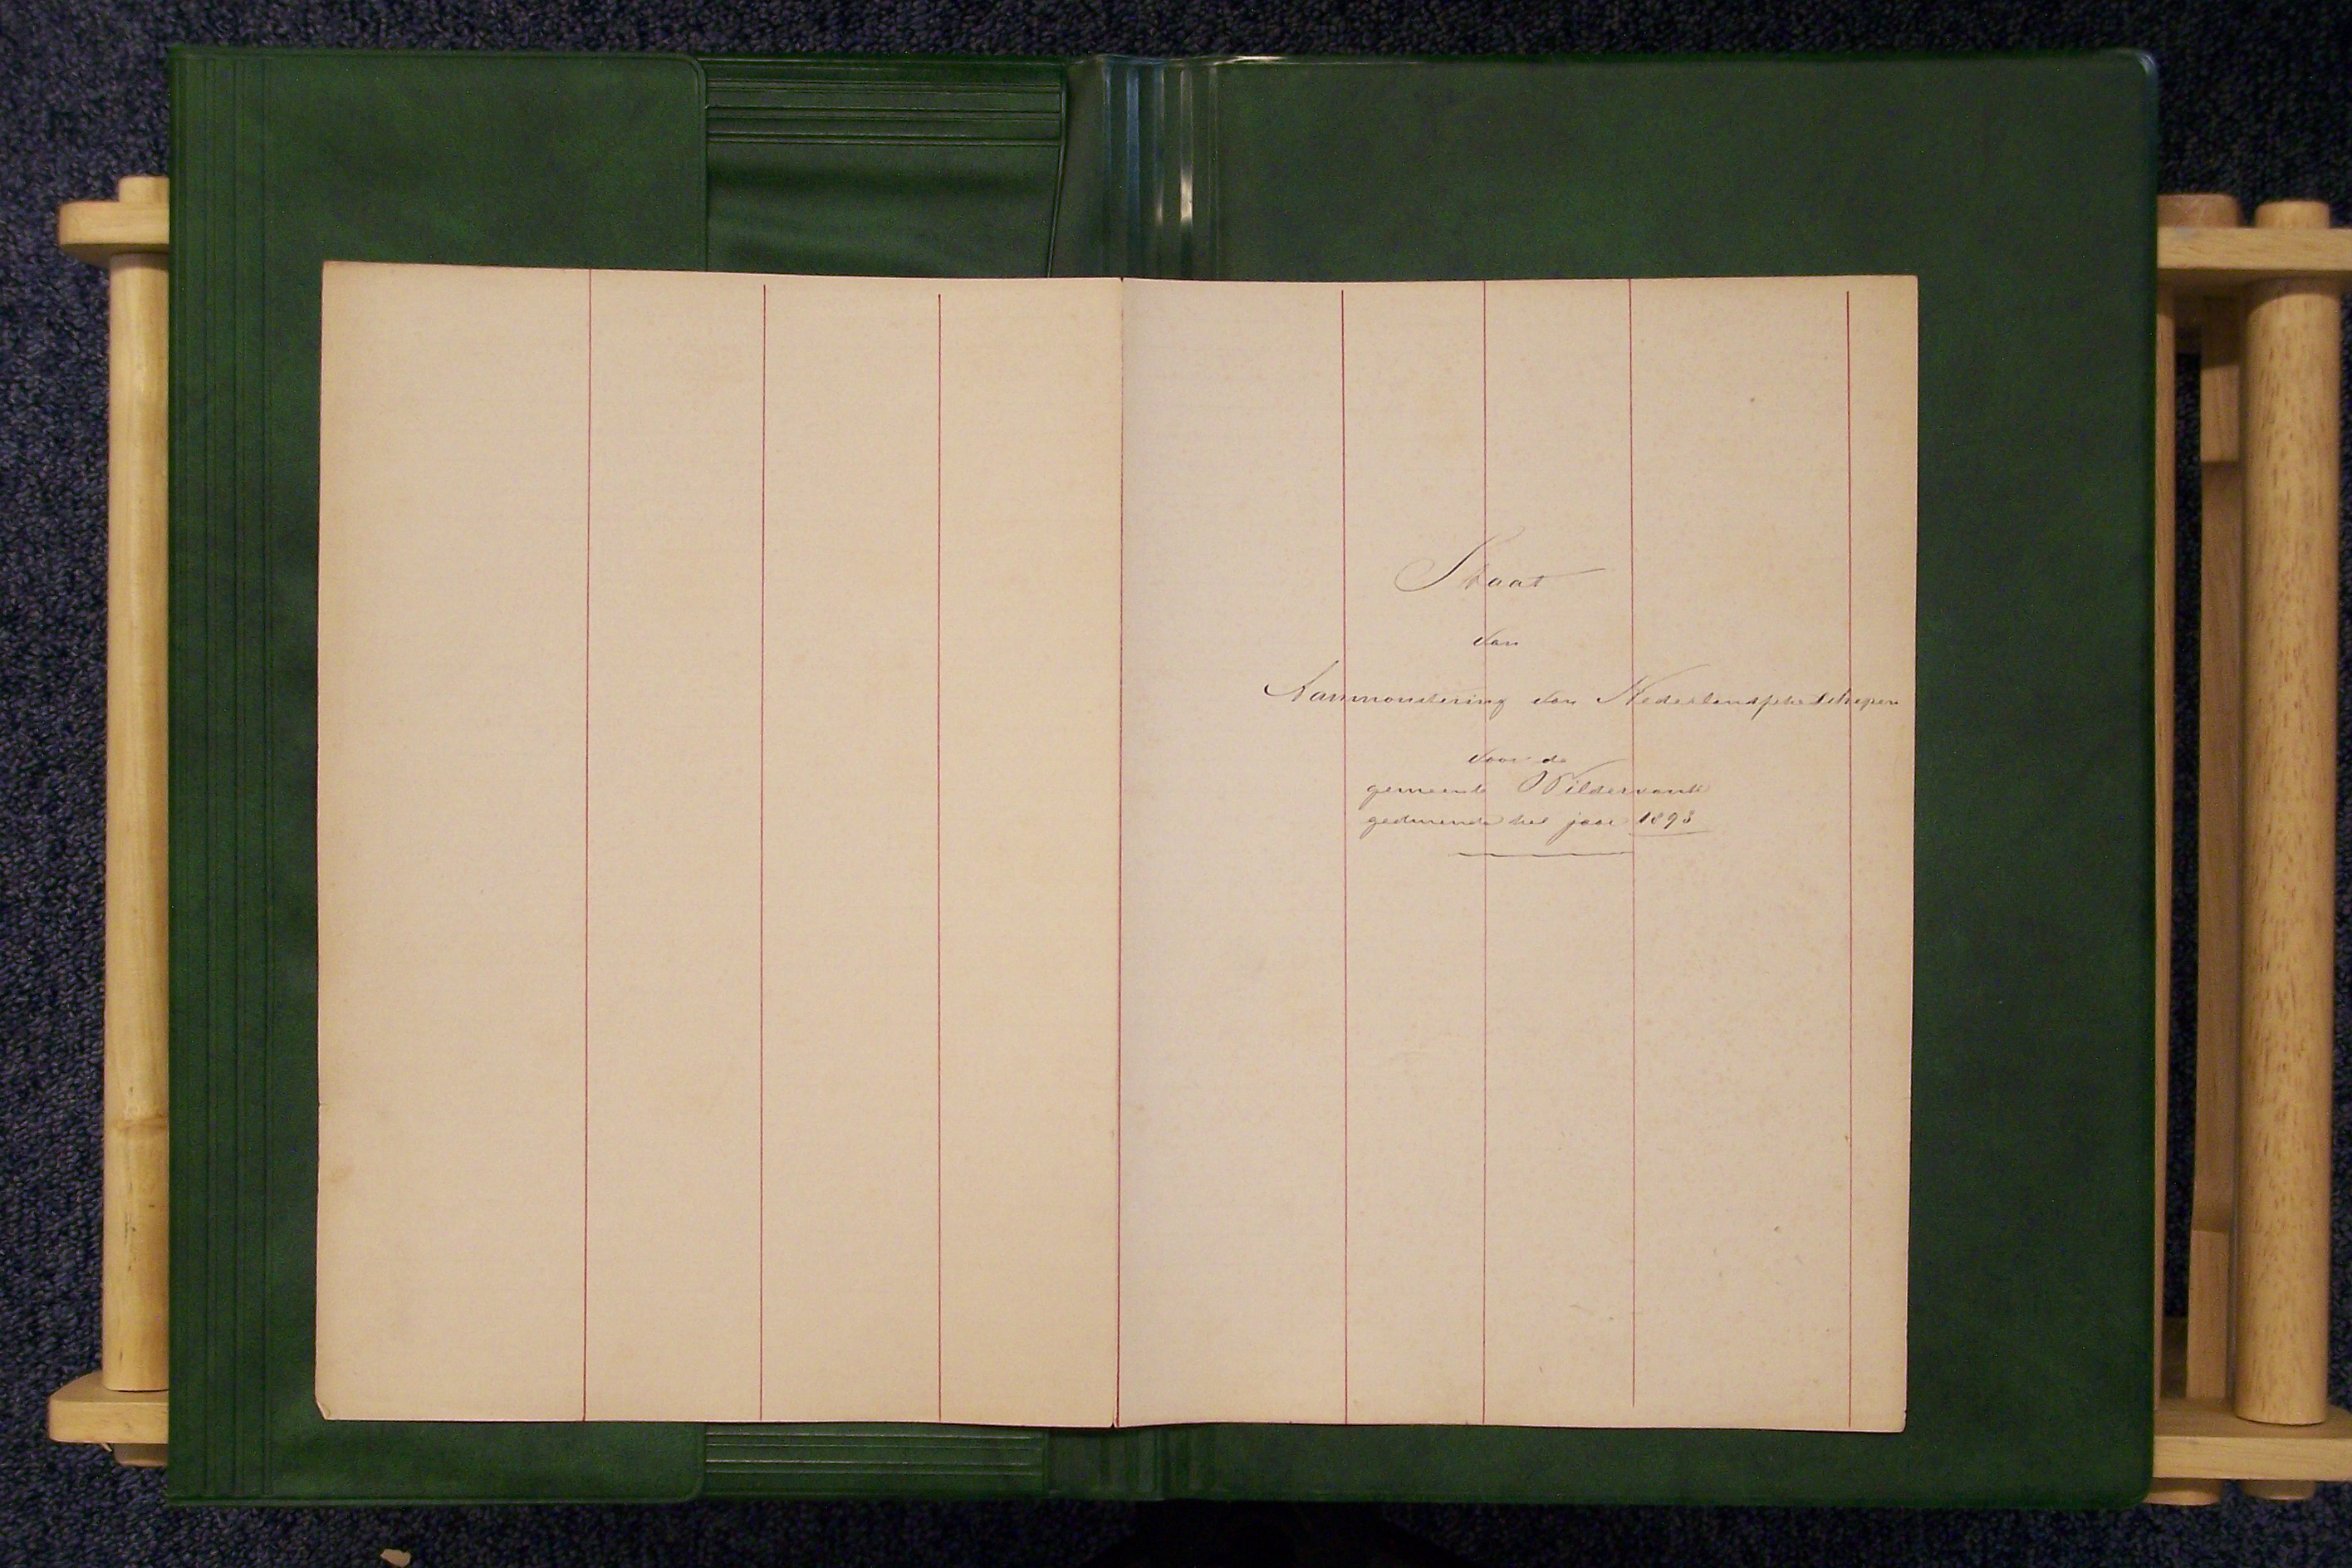 Staat
van
Aanmonstering van Nederlandsche Schepen
voor de
gemeente Wildervank
gedurende het jaar 1893